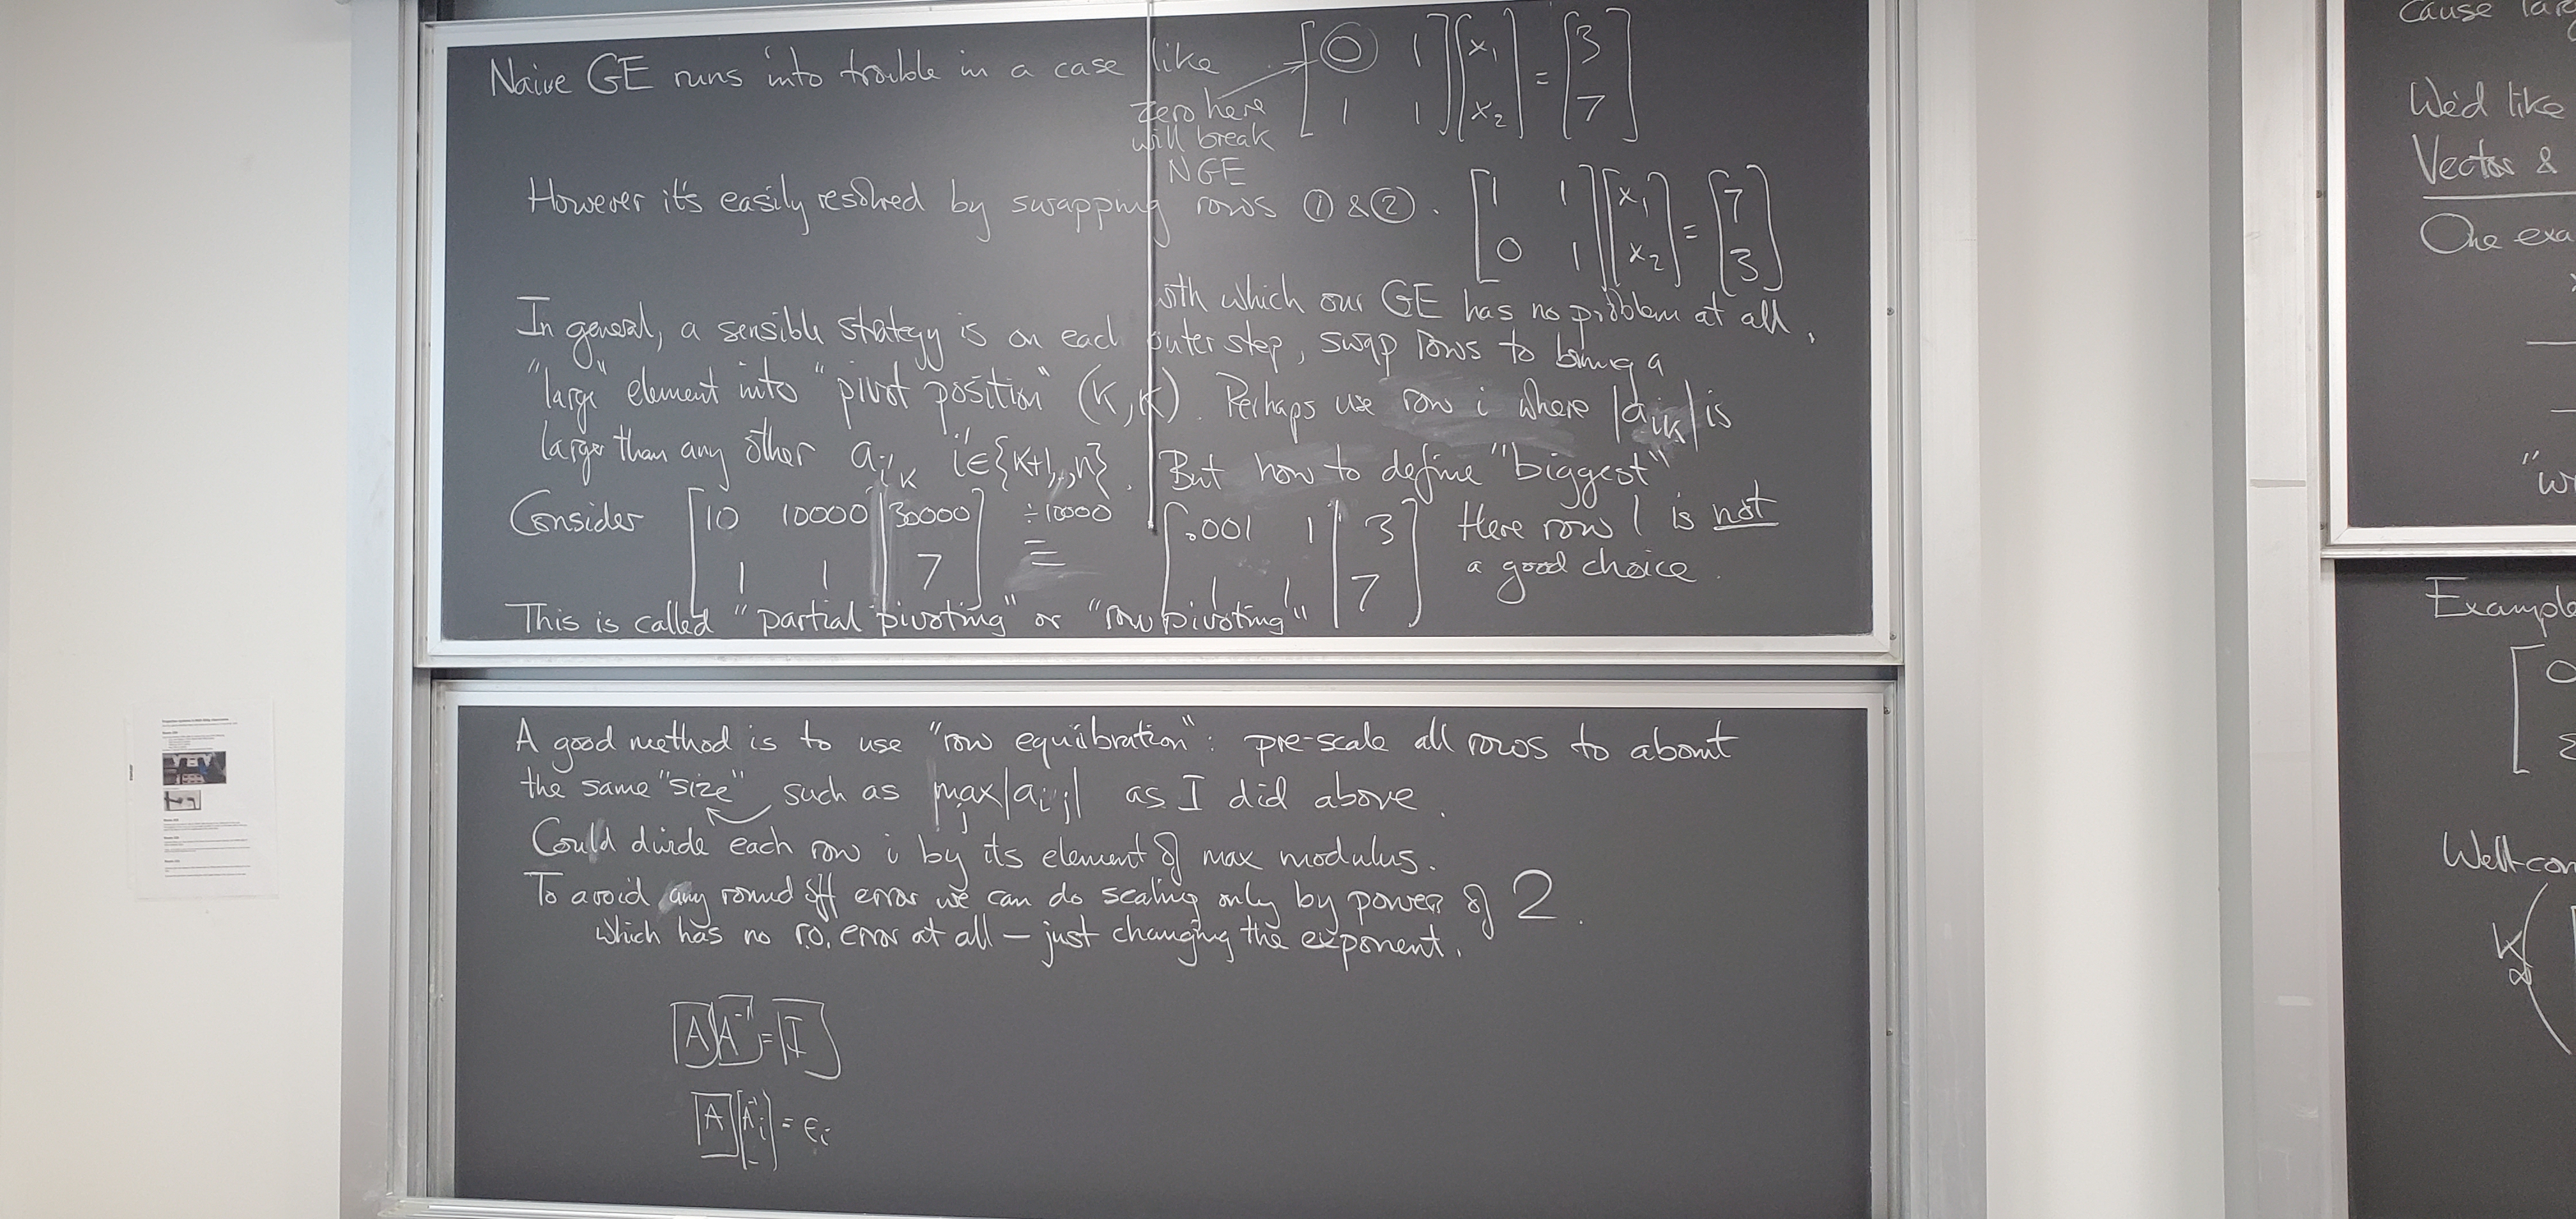 Naive GE runs into trouble in a case like [0 1; 1 1] [x₁; x₂] = [3; 7]
zero here
will break
NGE
However it's easily resolved by swapping rows ① & ②. [1 1; 0 1] [x₁; x₂] = [7; 3]
with which our GE has no problem at all.
In general, a sensible strategy is on each outer step, swap rows to bring a
"large" element into "pivot position" (K,K). Perhaps use row i where |a_iK| is
larger than any other a_i'K i'∈{K+1,..,n}. But how to define "biggest"
Consider [10 10000 | 30000; 1 1 | 7] ÷10000 ≡ [.001 1 | 3; 1 1 | 7] Here row 1 is not
a good choice.
This is called "partial pivoting" or "row pivoting"
A good method is to use "row equilibration": pre-scale all rows to about
the same "size" such as max_j |a_ij| as I did above.
Could divide each row i by its element of max modulus.
To avoid any round off error we can do scaling only by powers of 2.
which has no r.o. error at all – just changing the exponent.
[A][A⁻¹] = [I]
[A][A⁻¹_i] = e_i
Cause
We'd like
Vector &
One exa
"wi
Example
[0
ε
Well-con
K∞(